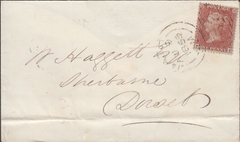 W Haggett Esq
Sherborne
Dorset